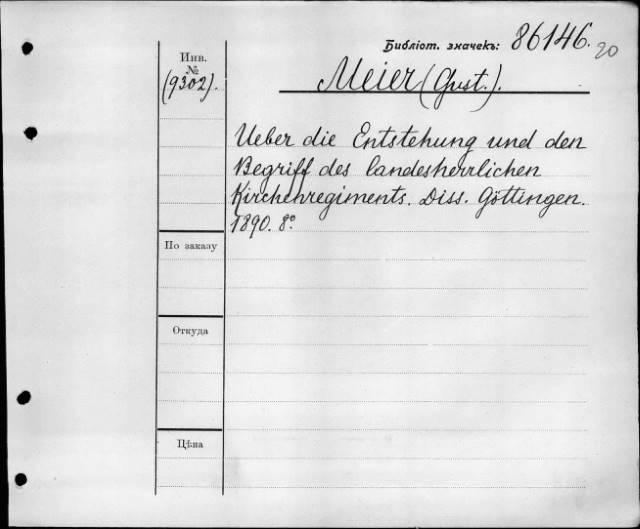 Библіот. значекъ: 86146. 20
Инв.
№
(9302).
Meier (Gust.).
Ueber die Entstehung und den
Begriff des landesherrlichen
Kirchenregiments. Diss. Göttingen.
1890. 8º
По заказу
Откуда
Цѣна